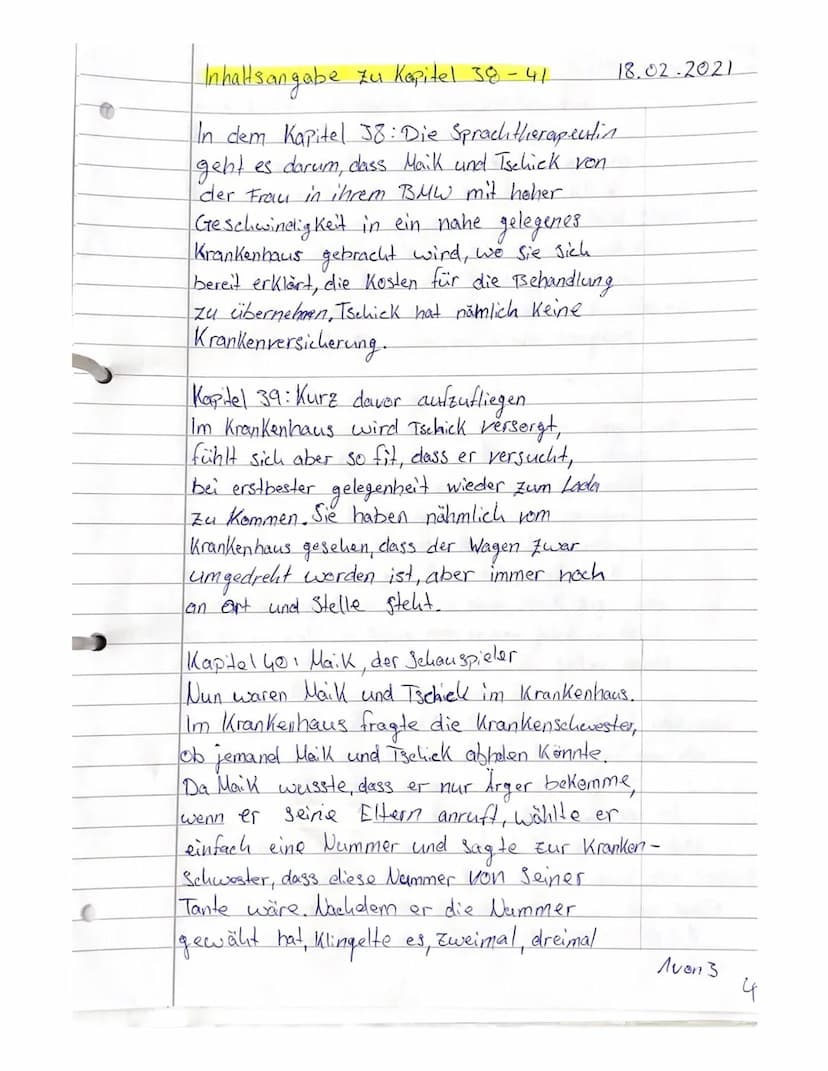 Inhaltsangabe zu Kapitel 38 - 41
18.02.2021
In dem Kapitel 38: Die Sprachtherapeutin
geht es darum, dass Maik und Tschick von
der Frau in ihrem BMW mit hoher
Geschwindigkeit in ein nahe gelegenes
Krankenhaus gebracht wird, wo sie sich
bereit erklärt, die Kosten für die Behandlung
zu übernehmen, Tschick hat nämlich keine
Krankenversicherung.
Kapitel 39: Kurz davor aufzufliegen
Im Krankenhaus wird Tschick versorgt,
fühlt sich aber so fit, dass er versucht,
bei erstbester gelegenheit wieder zum Lada
zu kommen. Sie haben nähmlich vom
Krankenhaus gesehen, dass der Wagen zwar
umgedreht worden ist, aber immer noch
an Ort und Stelle steht.
Kapitel 40: Maik, der Schauspieler
Nun waren Maik und Tschick im Krankenhaus.
Im Krankenhaus fragte die Krankenschwester,
ob jemand Maik und Tschick abholen könnte.
Da Maik wusste, dass er nur Ärger bekomme,
wenn er seine Eltern anruft, wählte er
einfach eine Nummer und sagte zur Kranken-
schwester, dass diese Nummer von seiner
Tante wäre. Nachdem er die Nummer
gewählt hat, klingelte es, zweimal, dreimal
1 von 3
4